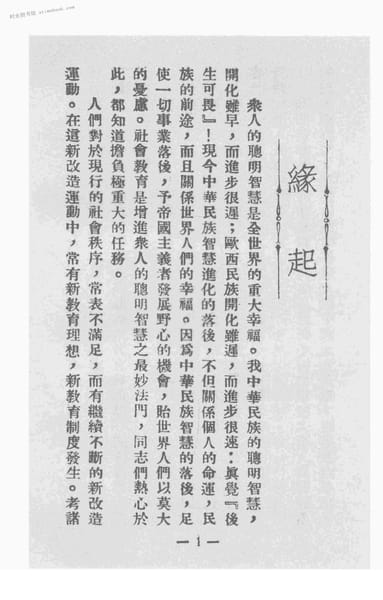 时光图书馆 stimebook.com
緣起
衆人的聰明智慧是全世界的重大幸福。我中華民族的聰明智慧，
開化雖早，而進步很遲；歐西民族開化雖遲，而進步很速：眞覺『後
生可畏』！現今中華民族智慧進化的落後，不但關係個人的命運，民
族的前途，而且關係世界人們的幸福。因爲中華民族智慧的落後，足
使一切事業落後，予帝國主義者發展野心的機會，貽世界人們以莫大
的憂慮。社會教育是增進衆人的聰明智慧之最妙法門，同志們熱心於
此，都知道擔負極重大的任務。
人們對於現行的社會秩序，常表不滿足，而有繼續不斷的新改造
運動。在這新改造運動中，常有新教育理想，新教育制度發生。考諸
— 1 —